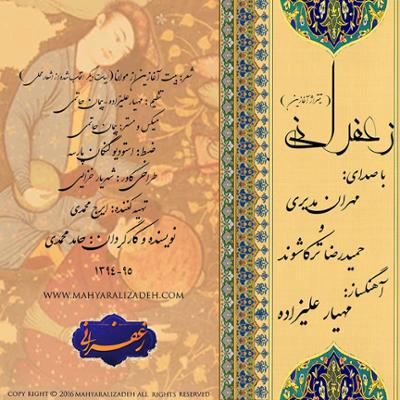 زعفرانی
(تیتراژ آغازین)
با صدای:
مهران مدیری
و
حمیدرضا ترکاشوند
آهنگساز:
مهیار علیزاده
شعر: بیت آغازین از مولانا (ابیات دیگر انتخاب شده از اشعار محلی)
تنظیم: مهیار علیزاده - پیمان حاتمی
میکس و مستر: پیمان حاتمی
ضبط: استودیو کنگان پارسه
طراحی کاور: شهریار خزائلی
تهیه کننده: ایرج محمدی
نویسنده و کارگردان: حامد محمدی
۱۳۹۴-۹۵
WWW.MAHYARALIZADEH.COM
زعفرانی
COPY RIGHT © 2016 MAHYARALIZADEH ALL RIGHTS RESERVED